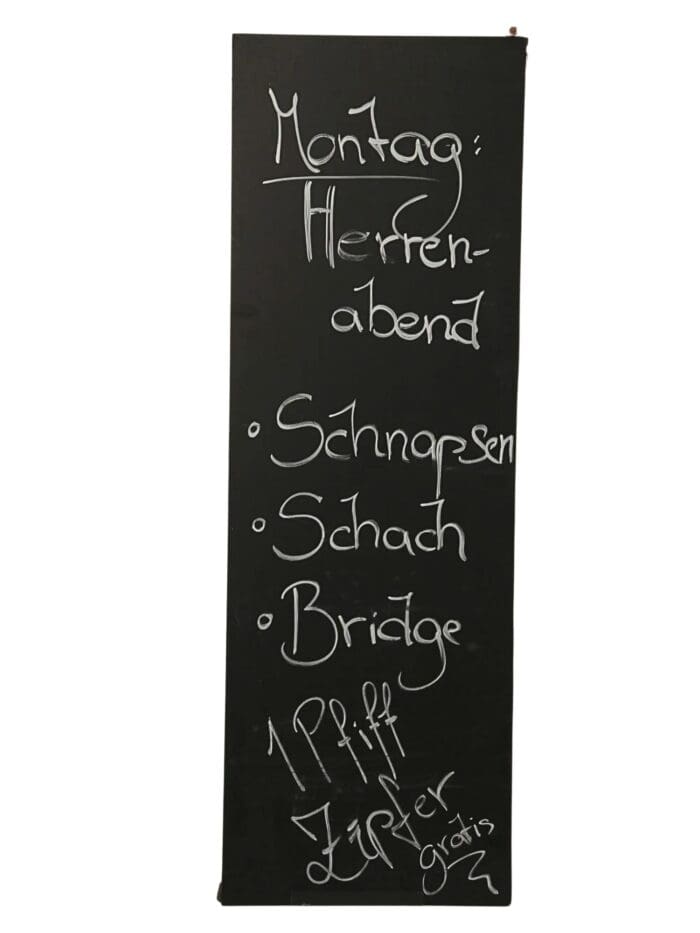 Montag:
Herren-
abend
• Schnapsen
• Schach
• Bridge
1 Pfiff
Zipfer
gratis